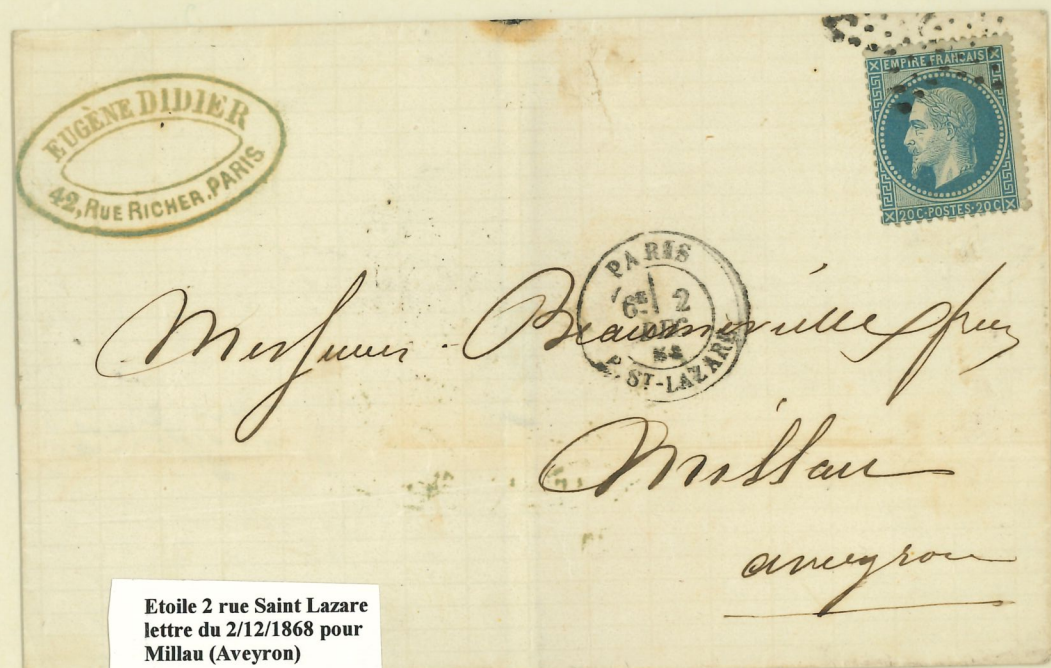 EUGÈNE DIDIER
42, RUE RICHER, PARIS
EMPIRE FRANCAIS
20C·POSTES·20C
PARIS
6E 2
DEC
R. ST-LAZARE
Messieurs
Millau
aveyron
Etoile 2 rue Saint Lazare
lettre du 2/12/1868 pour
Millau (Aveyron)